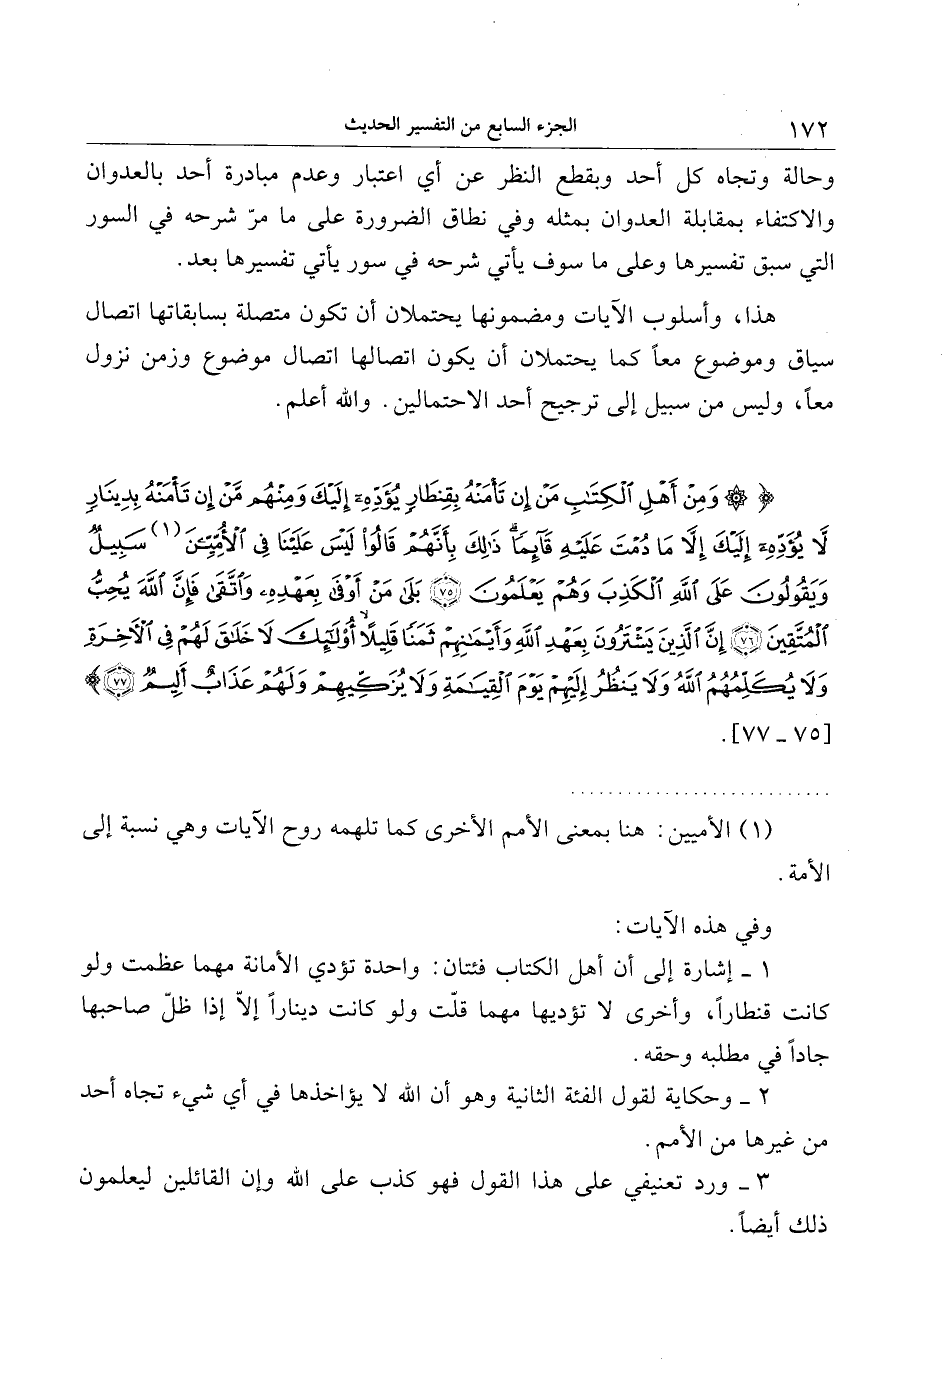 ١٧٢ الجزء السابع من التفسير الحديث
وحالة وتجاه كل أحد وبقطع النظر عن أي اعتبار وعدم مبادرة أحد بالعدوان
والاكتفاء بمقابلة العدوان بمثله وفي نطاق الضرورة على ما مرّ شرحه في السور
التي سبق تفسيرها وعلى ما سوف يأتي شرحه في سور يأتي تفسيرها بعد.
هذا، وأسلوب الآيات ومضمونها يحتملان أن تكون متصلة بسابقاتها اتصال
سياق وموضوع معاً كما يحتملان أن يكون اتصالها اتصال موضوع وزمن نزول
معاً، وليس من سبيل إلى ترجيح أحد الاحتمالين. والله أعلم.
﴿ ۞ وَمِنْ أَهْلِ ٱلْكِتَٰبِ مَنْ إِن تَأْمَنْهُ بِقِنطَارٍ يُؤَدِّهِۦٓ إِلَيْكَ وَمِنْهُم مَّنْ إِن تَأْمَنْهُ بِدِينَارٍ
لَّا يُؤَدِّهِۦٓ إِلَيْكَ إِلَّا مَا دُمْتَ عَلَيْهِ قَآئِمًاۗ ذَٰلِكَ بِأَنَّهُمْ قَالُوا۟ لَيْسَ عَلَيْنَا فِى ٱلْأُمِّيِّـۧنَ (١) سَبِيلٌ
وَيَقُولُونَ عَلَى ٱللَّهِ ٱلْكَذِبَ وَهُمْ يَعْلَمُونَ ٧٥ بَلَىٰ مَنْ أَوْفَىٰ بِعَهْدِهِۦ وَٱتَّقَىٰ فَإِنَّ ٱللَّهَ يُحِبُّ
ٱلْمُتَّقِينَ ٧٦ إِنَّ ٱلَّذِينَ يَشْتَرُونَ بِعَهْدِ ٱللَّهِ وَأَيْمَٰنِهِمْ ثَمَنًا قَلِيلًا أُو۟لَٰٓئِكَ لَا خَلَٰقَ لَهُمْ فِى ٱلْـَٔاخِرَةِ
وَلَا يُكَلِّمُهُمُ ٱللَّهُ وَلَا يَنظُرُ إِلَيْهِمْ يَوْمَ ٱلْقِيَٰمَةِ وَلَا يُزَكِّيهِمْ وَلَهُمْ عَذَابٌ أَلِيمٌ ٧٧ ﴾
[٧٥ ـ ٧٧].
(١) الأميين: هنا بمعنى الأمم الأخرى كما تلهمه روح الآيات وهي نسبة إلى
الأمة.
وفي هذه الآيات:
١ ـ إشارة إلى أن أهل الكتاب فئتان: واحدة تؤدي الأمانة مهما عظمت ولو
كانت قنطاراً، وأخرى لا تؤديها مهما قلّت ولو كانت ديناراً إلاّ إذا ظلّ صاحبها
جاداً في مطلبه وحقه.
٢ ـ وحكاية لقول الفئة الثانية وهو أن الله لا يؤاخذها في أي شيء تجاه أحد
من غيرها من الأمم.
٣ ـ ورد تعنيفي على هذا القول فهو كذب على الله وإن القائلين ليعلمون
ذلك أيضاً.